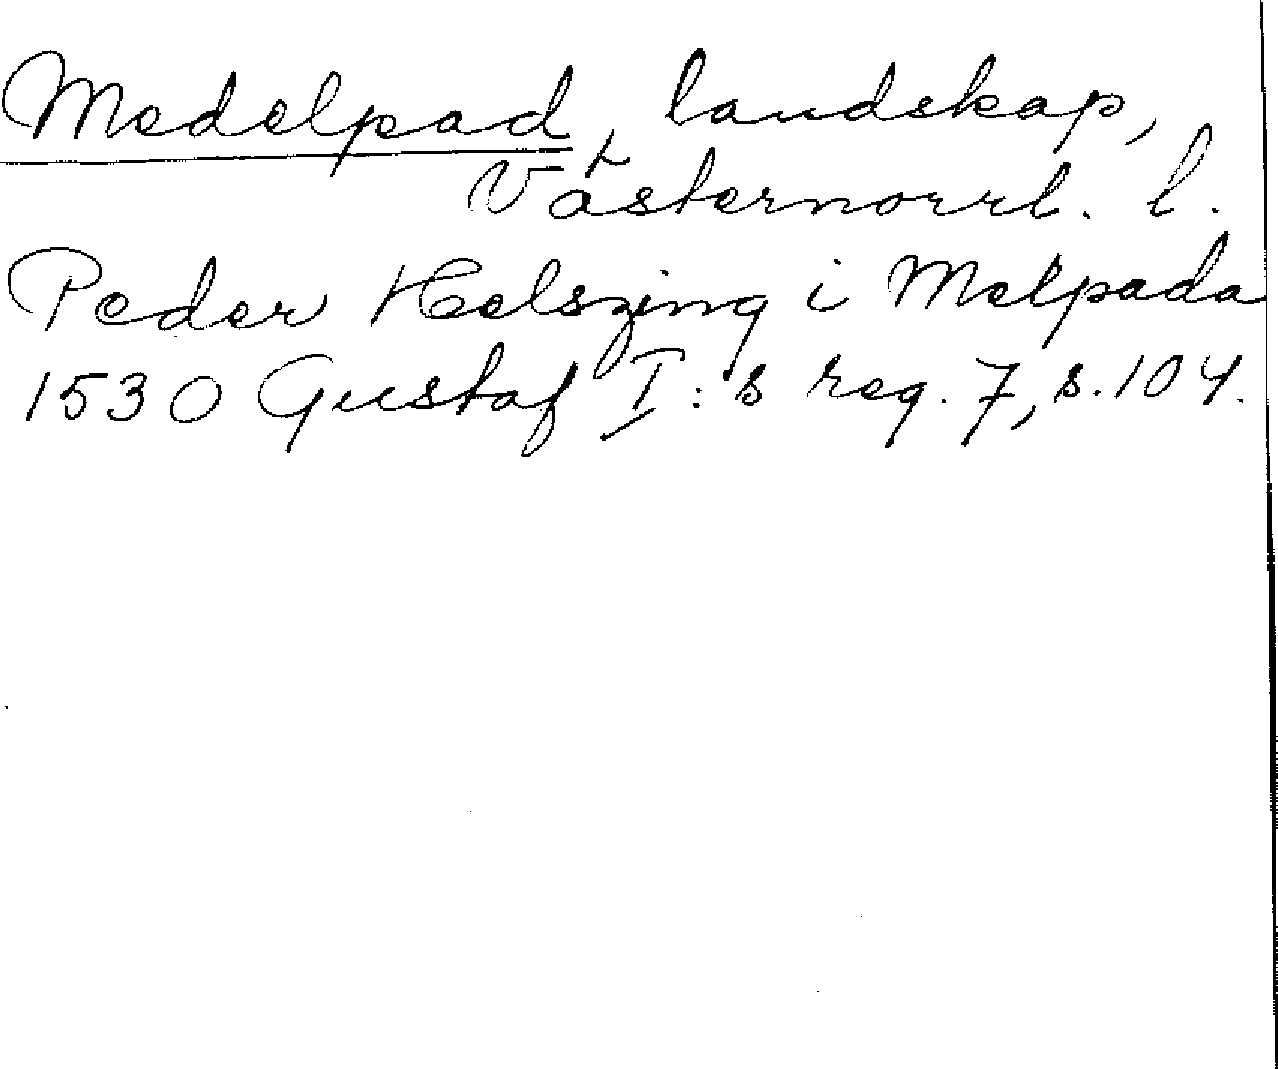 Medelpad, landskap,
Västernorrl. l.
Peder Helszing i Melpada
1530 Gustaf I:s reg. 7, s. 104.